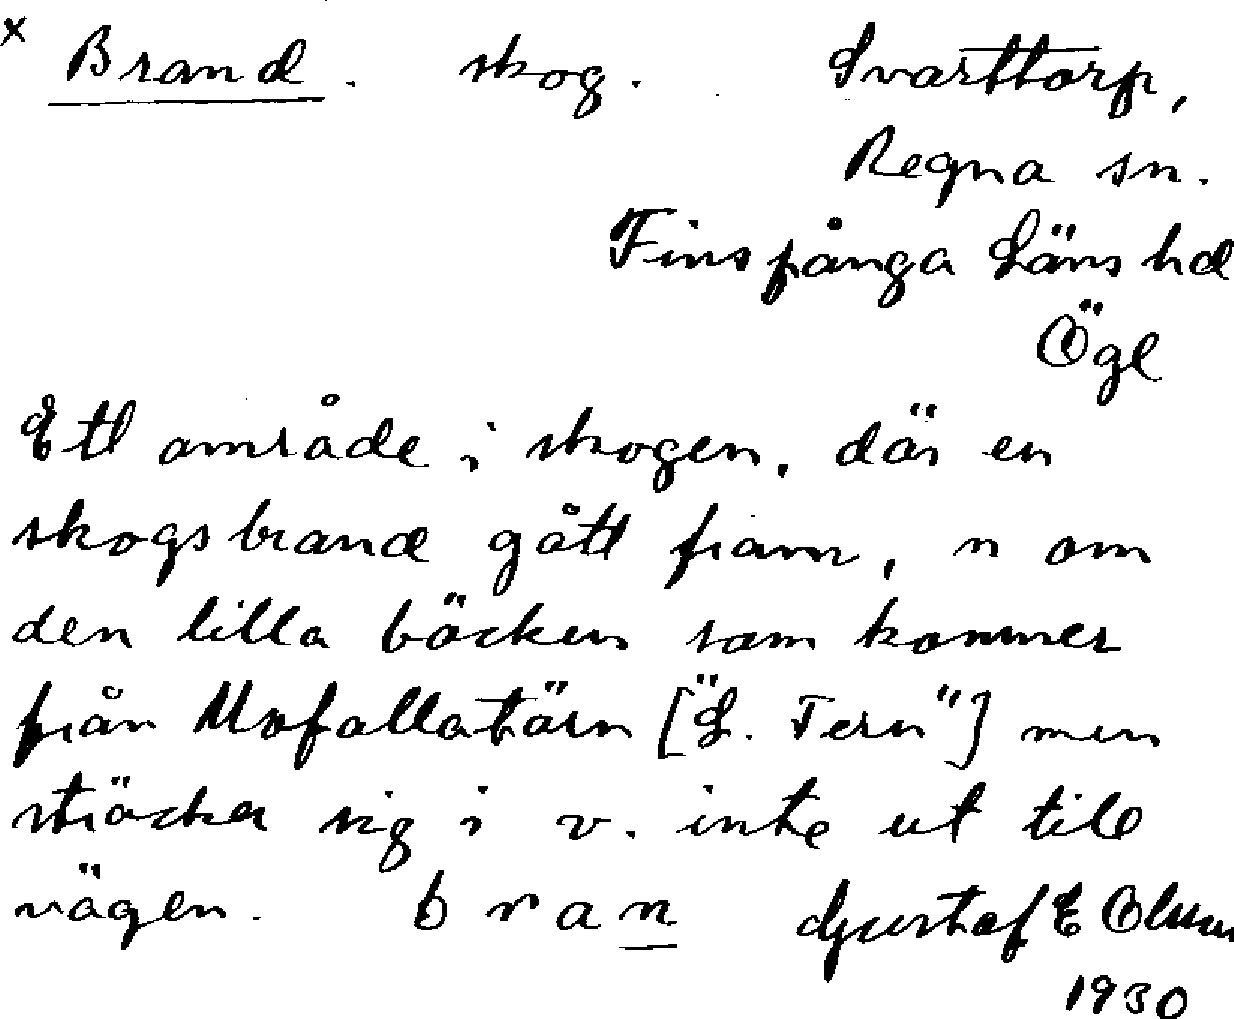 x Brand. skog. Svarttorp,
Regna sn.
Finspånga Läns hd
Ögl
Ett område i skogen, där en
skogsbrand gått fram, n om
den lilla bäcken som kommer
från Mofallatärn ["L. Tern"] men
sträcker sig i v. inte ut till
vägen. bran Gustaf E Olsson
1930